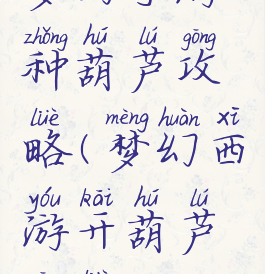 zhǒng hú lú gōng
种葫芦攻
lüè mèng huàn xī
略(梦幻西
yóu kāi hú lú
游开葫芦